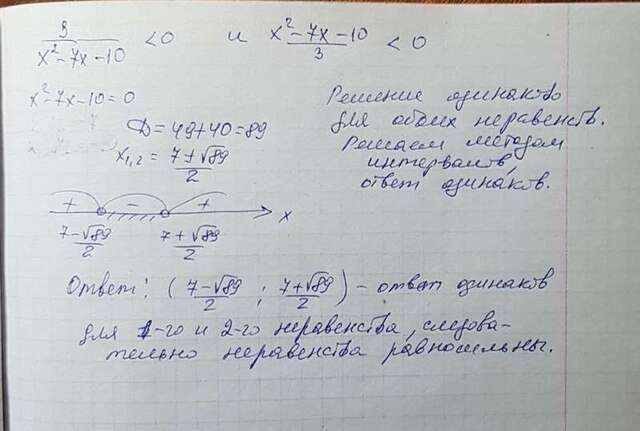 9/(x² - 7x - 10) < 0 и (x² - 7x - 10)/3 < 0
x² - 7x - 10 = 0
D = 49 + 40 = 89
x₁,₂ = (7 ± √89)/2
Решение одинаково
для обоих неравенств.
Решаем методом
интервалов,
ответ одинаков.
+ - + x
(7 - √89)/2 (7 + √89)/2
Ответ: ((7 - √89)/2 ; (7 + √89)/2) - ответ одинаков
для 1-го и 2-го неравенства, следова-
тельно неравенства равносильны.